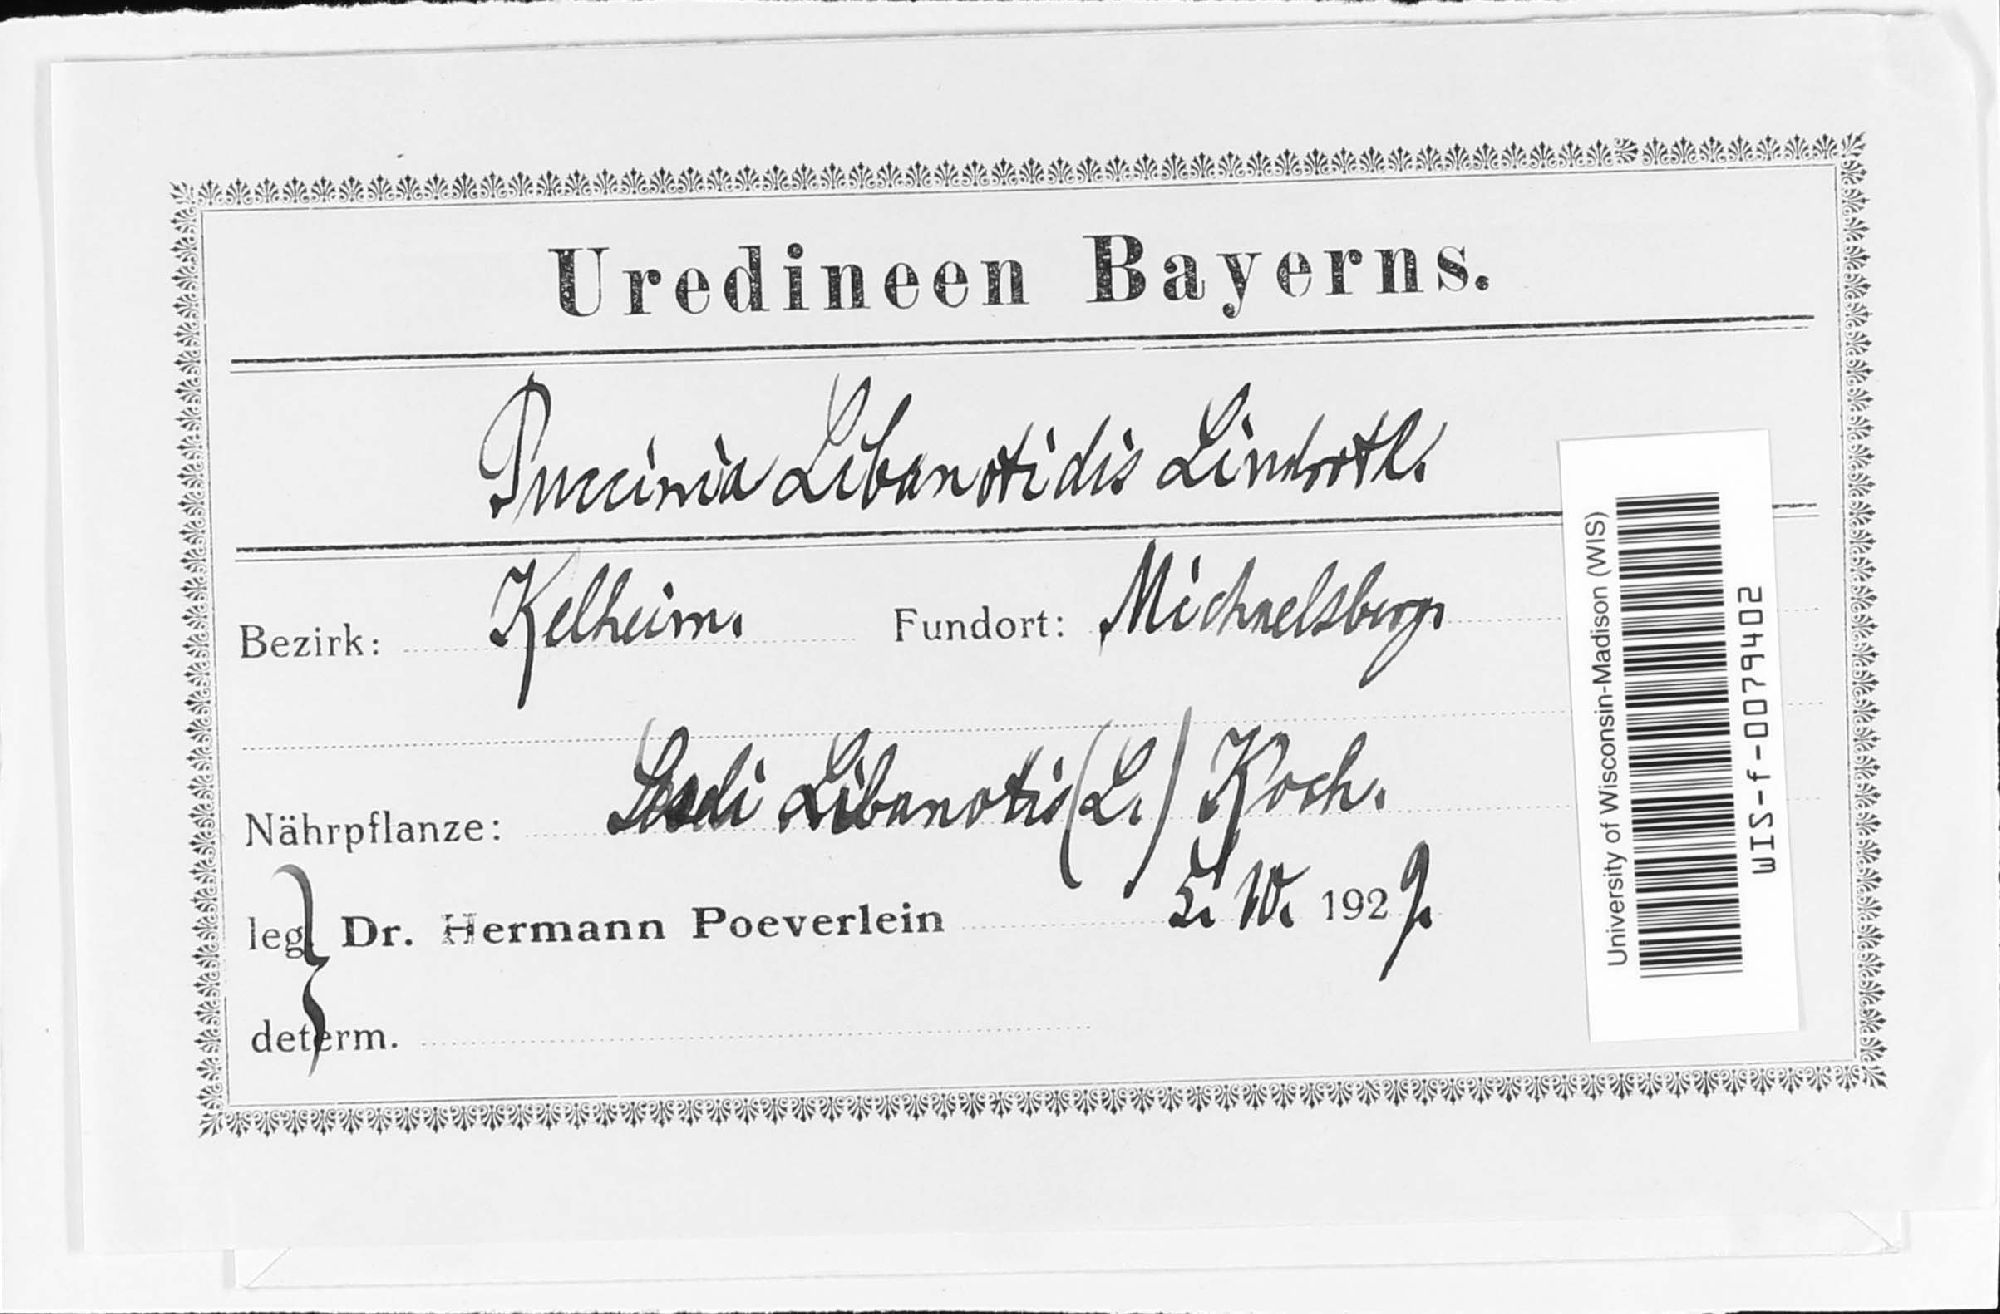 Uredineen Bayerns.
Puccinia Libanotidis Lindroth.
Bezirk: Kelheim. Fundort: Michaelsberg.
Nährpflanze: Libanotis (L.) Koch.
leg. Dr. Hermann Poeverlein 5. 10. 1929.
determ.
University of Wisconsin-Madison (WIS)
WIS-f-0079402